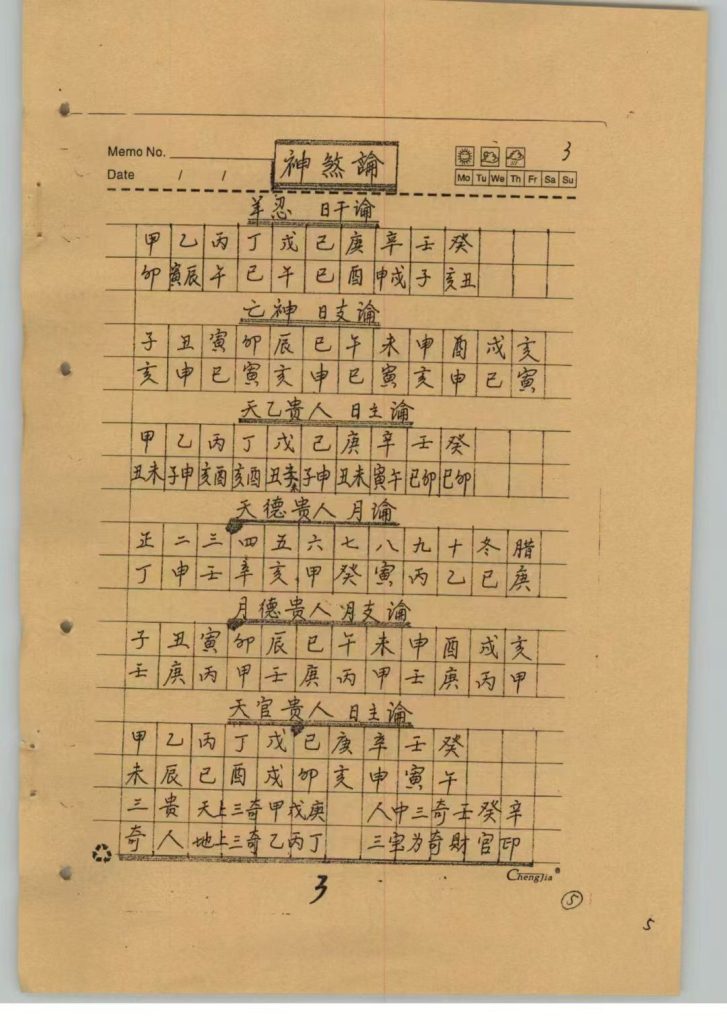 Memo No.
神煞論
3
Date / /
Mo Tu We Th Fr Sa Su
羊忍 日干论
甲 乙 丙 丁 戊 己 庚 辛 壬 癸
卯 寅辰 午 巳 午 巳 酉 申戌 子 亥丑
亡神 日支論
子 丑 寅 卯 辰 巳 午 未 申 酉 戌 亥
亥 申 巳 寅 亥 申 巳 寅 亥 申 巳 寅
天乙贵人 日主論
甲 乙 丙 丁 戊 己 庚 辛 壬 癸
丑未 子申 亥酉 亥酉 丑未 子申 丑未 寅午 巳卯 巳卯
天德贵人 月論
正 二 三 四 五 六 七 八 九 十 冬 腊
丁 申 壬 辛 亥 甲 癸 寅 丙 乙 巳 庚
月德贵人 月支論
子 丑 寅 卯 辰 巳 午 未 申 酉 戌 亥
壬 庚 丙 甲 壬 庚 丙 甲 壬 庚 丙 甲
天官贵人 日主論
甲 乙 丙 丁 戊 己 庚 辛 壬 癸
未 辰 巳 酉 戌 卯 亥 申 寅 午
三贵 天上三奇甲戊庚 人中三奇壬癸辛
奇人 地上三奇乙丙丁 三字为奇財官印
ChengJia
3
5
5